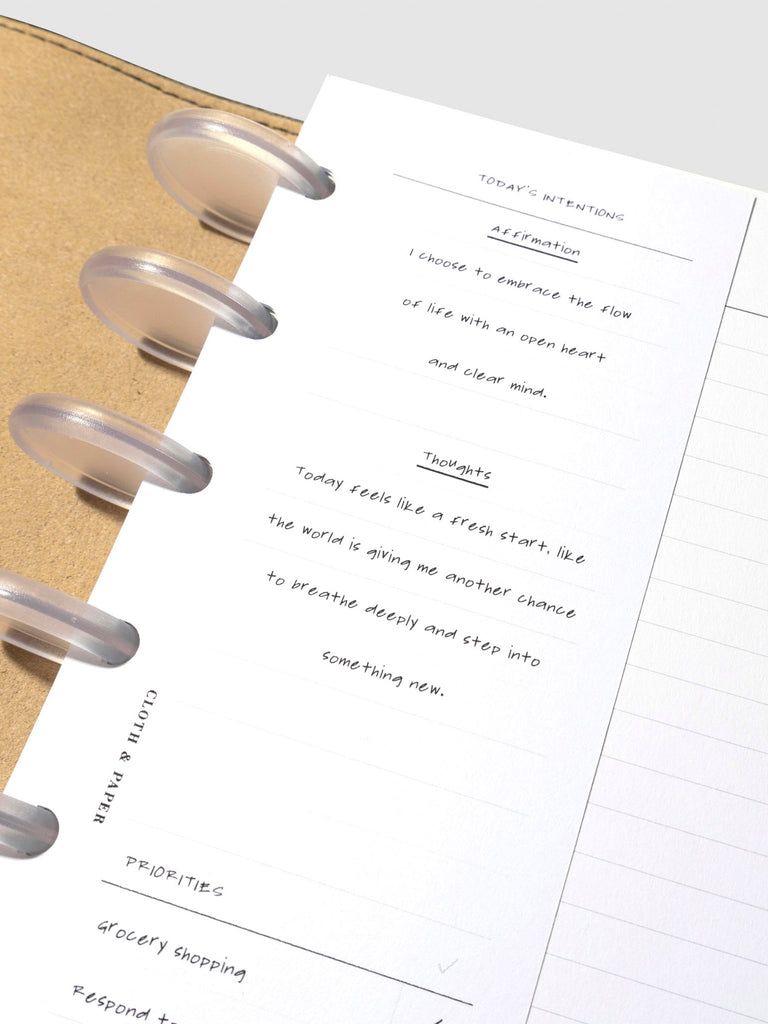 TODAY'S INTENTIONS
Affirmation
I choose to embrace the flow
of life with an open heart
and clear mind.
Thoughts
Today feels like a fresh start, like
the world is giving me another chance
to breathe deeply and step into
something new.
CLOTH & PAPER
PRIORITIES
Grocery shopping
Respond